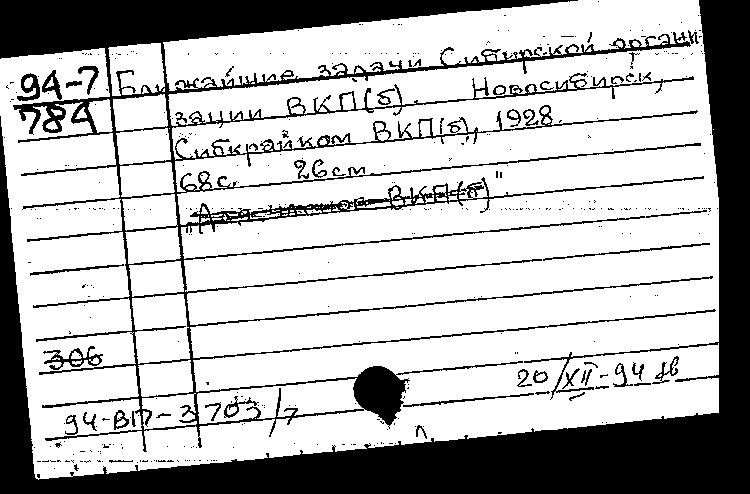 94-7 Ближайшие задачи Сибирской органи
784 зации ВКП(б). Новосибирск,
Сибкрайком ВКП(б), 1928.
68с. 26см.
„Для членов ВКП(б)".
306
20/XII-94
94-ВП-3703/7